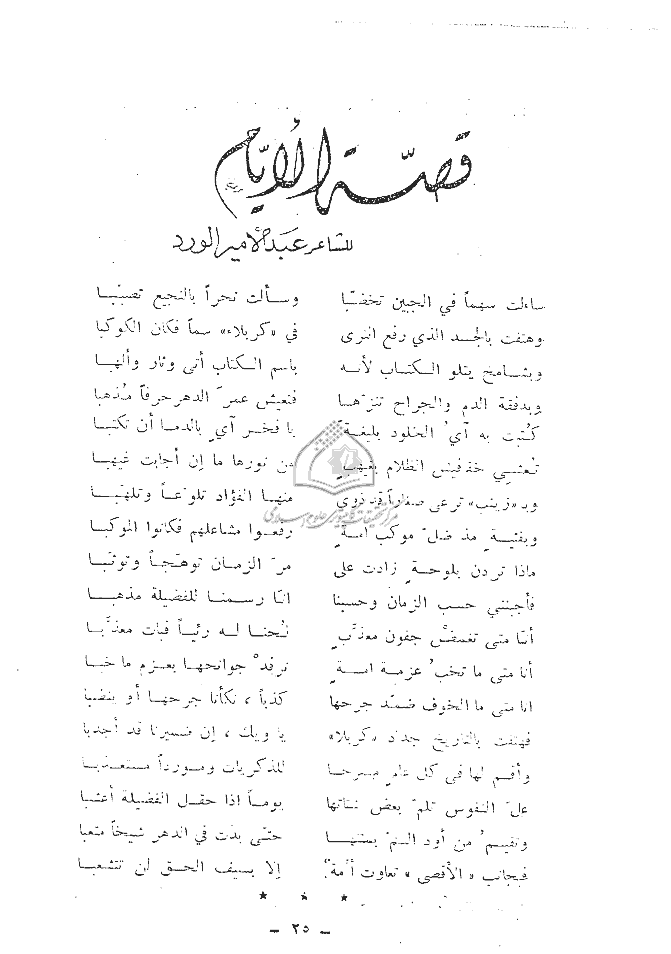 قصّة الأيّام
للشاعر عبد الأمير الورد
ساءلت سهماً في الجبين تخضّبا وسألت نحراً بالنجيع تصبّبا
وهتفت بالجسد الذي رفع الثرى في «كربلاء» سماً فكان الكوكبا
وبشامخ يتلو الكتاب لأنه باسم الكتاب أتى وثار وألهبا
وبدفقة الدم والجراح تنزّها فتعيش عمرَ الدهر حرفاً مُذهبا
كُتبت به آيُ الخلود بليغةً يا فخر آيٍ بالدما أن تكتبا
تُعشي خفافيش الظلام بعيهبٍ من نورها ما إن أجابت غيهبا
وبـ«زينب» ترعى صغاراً قد ذوى منها الفؤاد تلوّعاً وتلهّبا
وبفتيةٍ مذ ضلّ موكب امةٍ رفعوا مشاعلهم فكانوا الموكبا
ماذا تردن بلوحةٍ زادت على مرّ الزمان توهّجاً وتوثّبا
فأجبنني حسب الزمان وحسبنا انّا رسمنا للفضيلة مذهبا
أنّا متى تغمضْ جفون معذّبٍ لُحنا له رئياً فبات معذّبا
أنا متى ما تخبُ عزمة امةٍ ترفدْ جوانحها بعزم ما خبا
انا متى ما الخوف ضمّد جرحها كذباً، نكأنا جرحها أو ينضبا
فهتفت بالتاريخ جدّد «كربلا» يا ويك، إن ضميرنا قد أجدبا
وأقم لها في كل عامٍ مسرحا للذكريات ومورداً مستعذبا
علّ النفوس تلم بعض شتاتها يوماً إذا حقل الفضيلة أعشبا
وتقيمُ من أود الـ حتّى بدت في الدهر شيخاً متعبا
فبجانب «الأقصى» تعاوت أمةٌ إلا بسيف الحق لن تتشعبا
* * *
– ٢٥ –
مركز تحقيقات كامپيوترى علوم اسلامى